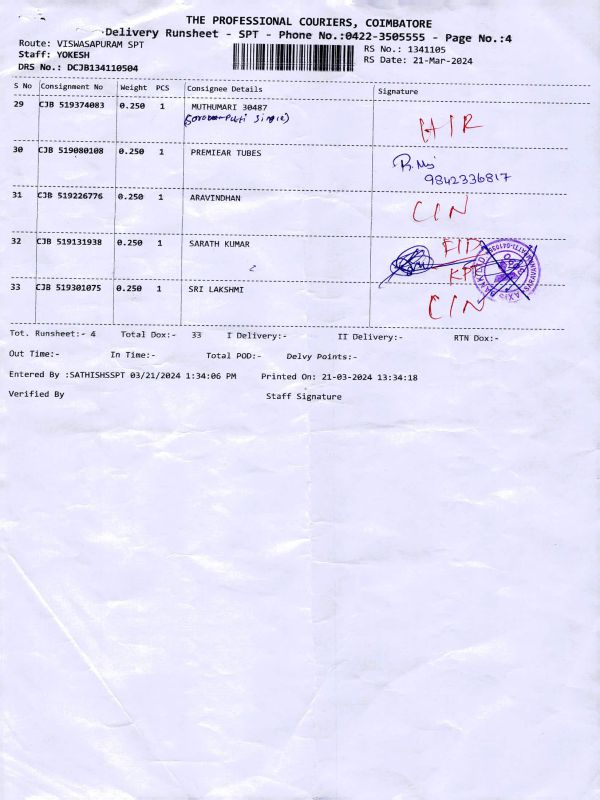 THE PROFESSIONAL COURIERS, COIMBATORE
Delivery Runsheet - SPT - Phone No.:0422-3505555 - Page No.:4
Route: VISWASAPURAM SPT
RS No.: 1341105
Staff: YOKESH
RS Date: 21-Mar-2024
DRS No.: DCJB134110504
S No Consignment No Weight PCS Consignee Details Signature
29 CJB 519374083 0.250 1 MUTHUMARI 30487
HIR
30 CJB 519080108 0.250 1 PREMIEAR TUBES
9842336817
31 CJB 519226776 0.250 1 ARAVINDHAN
CIN
32 CJB 519131938 0.250 1 SARATH KUMAR
33 CJB 519301075 0.250 1 SRI LAKSHMI
CIN
Tot. Runsheet:- 4 Total Dox:- 33 I Delivery:- II Delivery:- RTN Dox:-
Out Time:- In Time:- Total POD:- Delvy Points:-
Entered By :SATHISHSSPT 03/21/2024 1:34:06 PM Printed On: 21-03-2024 13:34:18
Verified By Staff Signature